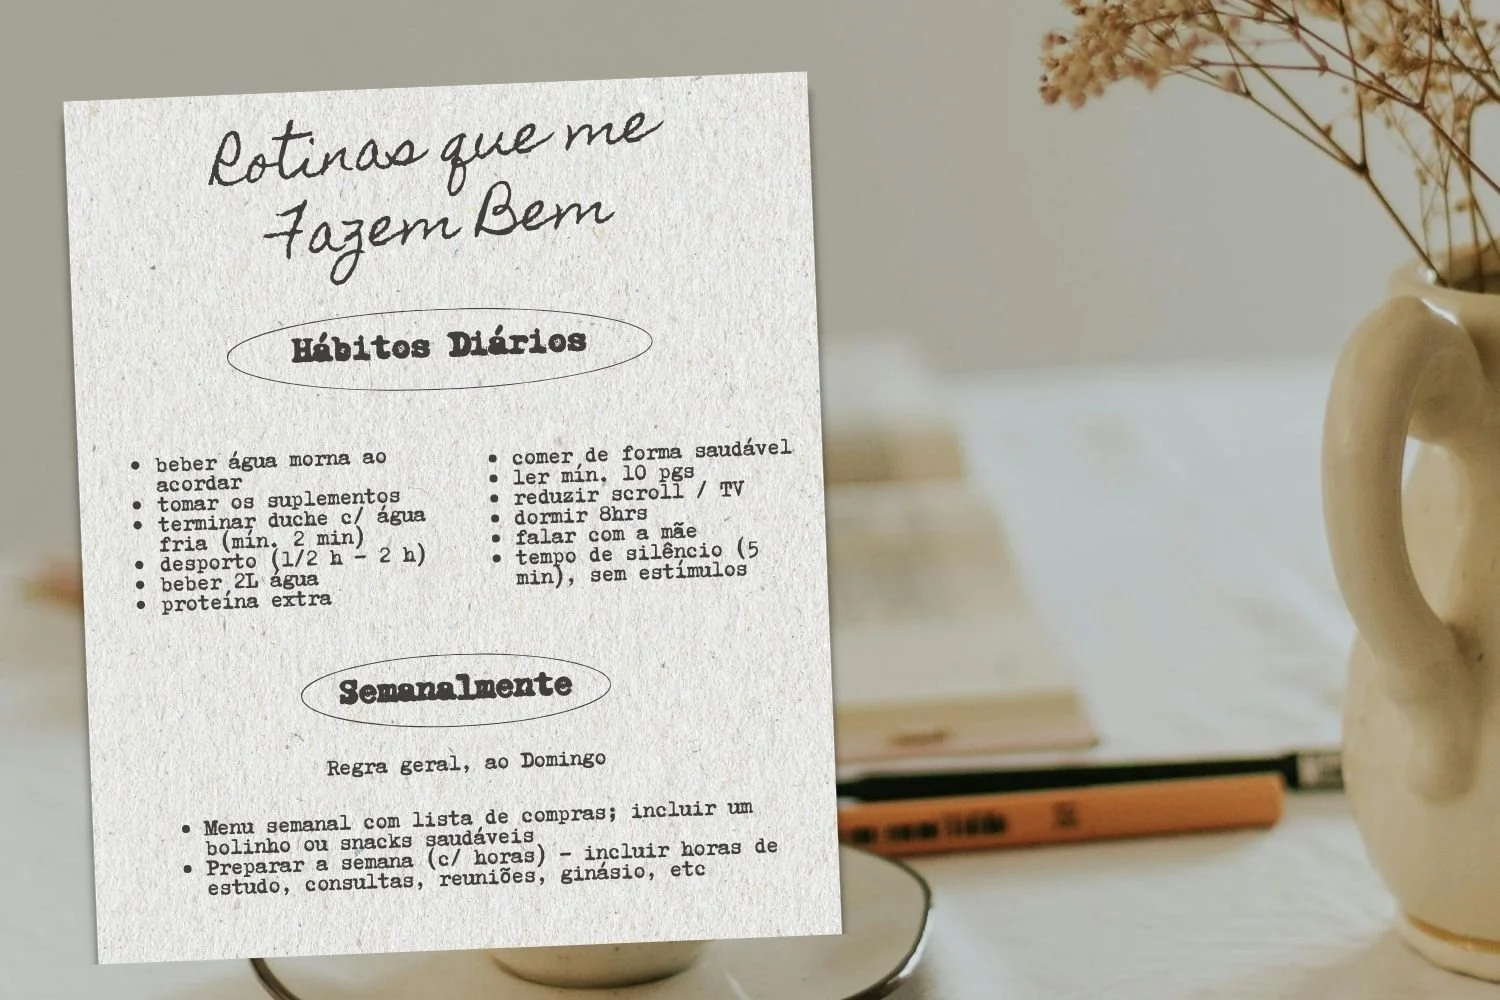 Rotinas que me
Fazem Bem
Hábitos Diários
• beber água morna ao
acordar
• tomar os suplementos
• terminar duche c/ água
fria (mín. 2 min)
• desporto (1/2 h - 2 h)
• beber 2L água
• proteína extra
• comer de forma saudável
• ler mín. 10 pgs
• reduzir scroll / TV
• dormir 8hrs
• falar com a mãe
• tempo de silêncio (5
min), sem estímulos
Semanalmente
Regra geral, ao Domingo
• Menu semanal com lista de compras; incluir um
bolinho ou snacks saudáveis
• Preparar a semana (c/ horas) - incluir horas de
estudo, consultas, reuniões, ginásio, etc